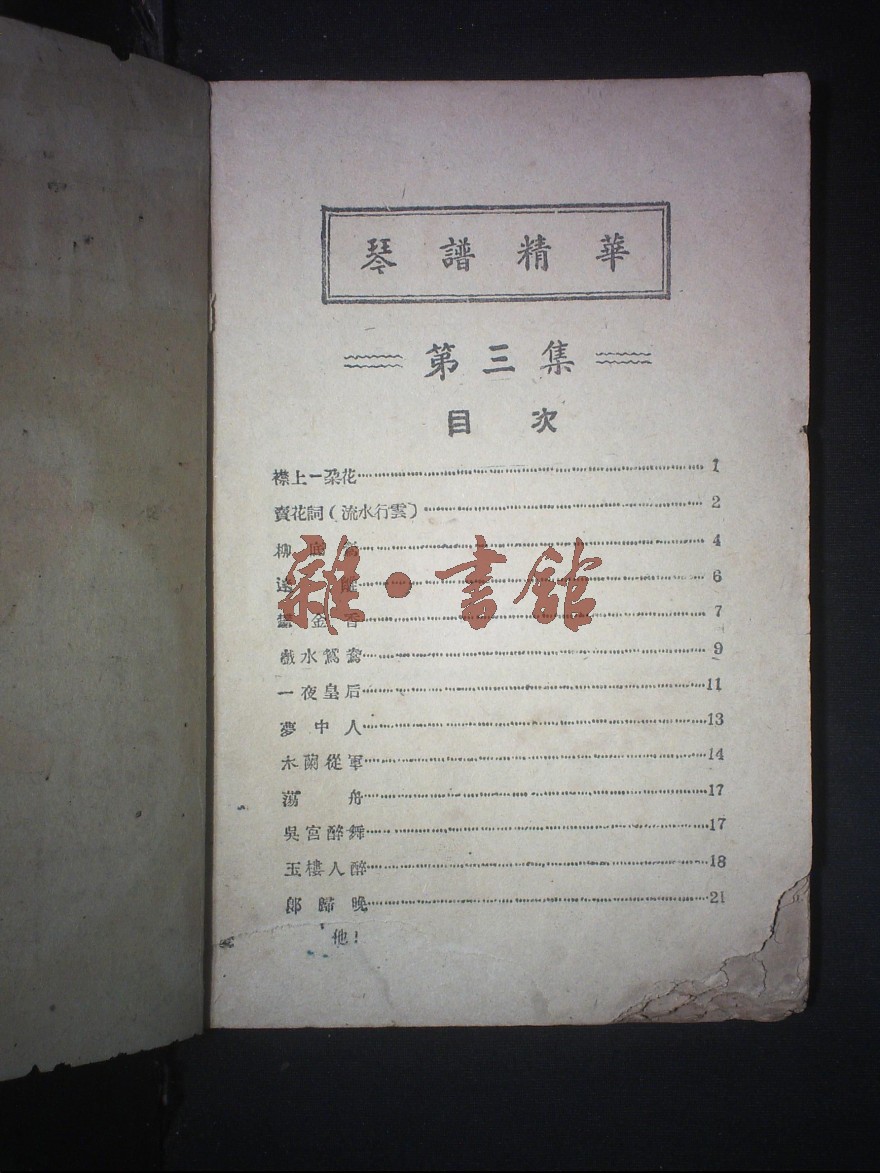 琴譜精華
第三集
目次
襟上一朶花 1
賣花詞(流水行雲) 2
柳 4
迷離 6
鬱金香 7
戲水鴛鴦 9
一夜皇后 11
夢中人 13
木蘭從軍 14
蕩舟 17
吳宮醉舞 17
玉樓人醉 18
郎歸晚 21
他!
雜·書館